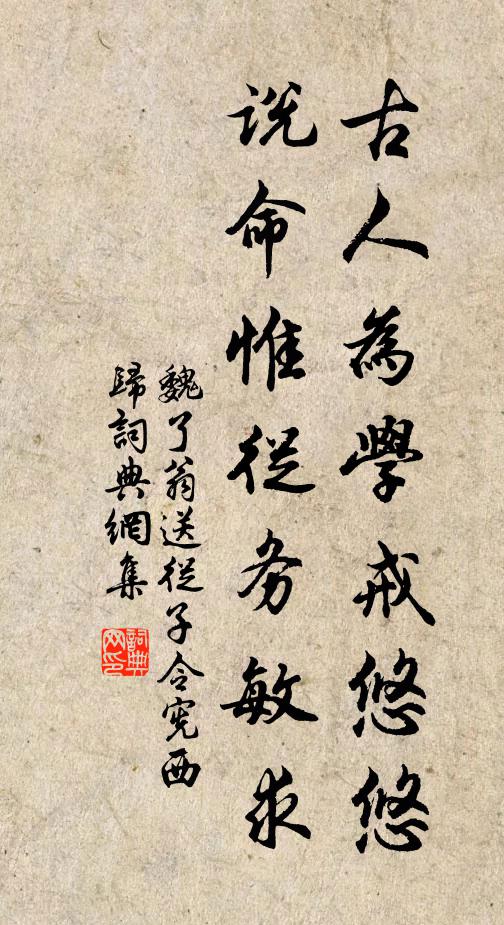 古人為學戒悠悠
说命惟從务敏求
魏了翁送從子令憲西
歸詞典網集
詞典网印